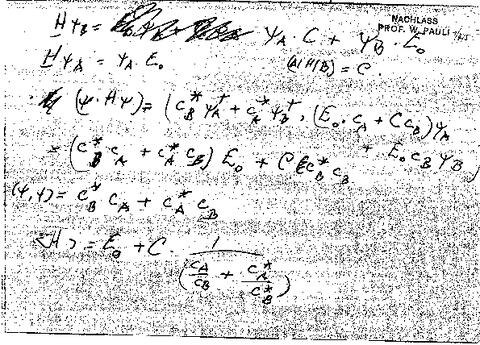 NACHLASS
PROF. W. PAULI
H ψ_B = ψ_A · C + ψ_B · E_0
H ψ_A = ψ_A E_0 (A|H|B) = C.
(ψ · Hψ) = (c_B^* ψ_A^† + c_A^* ψ_B^†, (E_0 · c_A + C c_B) ψ_A + E_0 c_B ψ_B)
= (c_B^* c_A + c_A^* c_B) E_0 + C c_B^* c_B
(ψ, ψ) = c_B^* c_A + c_A^* c_B
<H> = E_0 + C · 1 / (c_A/c_B + c_A^*/c_B^*)